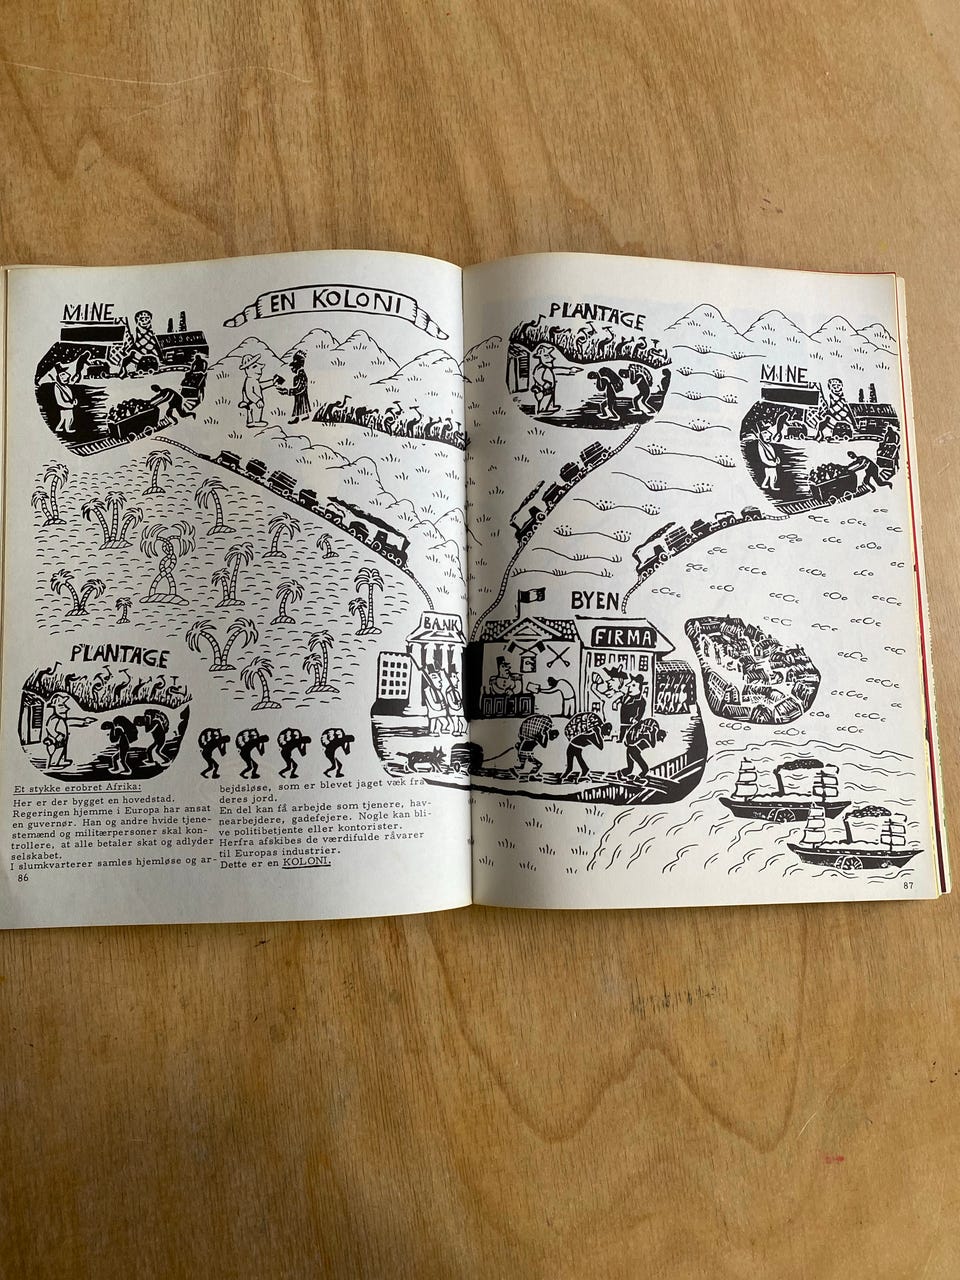 EN KOLONI
MINE
PLANTAGE
MINE
BYEN
BANK
FIRMA
PLANTAGE
Et stykke erobret Afrika:
Her er der bygget en hovedstad.
Regeringen hjemme i Europa har ansat
en guvernør. Han og andre hvide tjene-
stemænd og militærpersoner skal kon-
trollere, at alle betaler skat og adlyder
selskabet.
I slumkvarterer samles hjemløse og ar-
bejdsløse, som er blevet jaget væk fra
deres jord.
En del kan få arbejde som tjenere, hav-
nearbejdere, gadefejere. Nogle kan bli-
ve politibetjente eller kontorister.
Herfra afskibes de værdifulde råvarer
til Europas industrier.
Dette er en KOLONI.
86
87